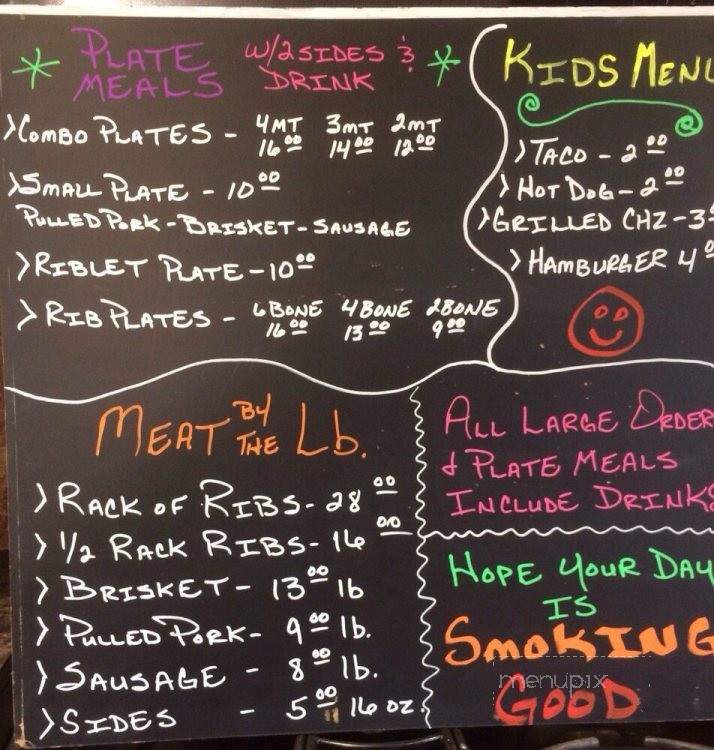 PLATE MEALS W/2 SIDES & DRINK
COMBO PLATES - 4MT 3MT 2MT
16.00 14.00 12.00
SMALL PLATE - 10.00
PULLED PORK - BRISKET - SAUSAGE
RIBLET PLATE - 10.00
RIB PLATES - 6 BONE 4 BONE 2 BONE
16.00 13.00 9.00
KIDS MENU
TACO - 2.00
HOT DOG - 2.00
GRILLED CHZ - 3
HAMBURGER 4
MEAT BY THE Lb.
RACK OF RIBS - 28.00
1/2 RACK RIBS - 16.00
BRISKET - 13.00 lb
PULLED PORK - 9.00 lb.
SAUSAGE - 8.00 lb.
SIDES - 5.00 16 oz.
ALL LARGE ORDER
& PLATE MEALS
INCLUDE DRINKS
HOPE YOUR DAY
IS
SMOKING
GOOD
menupix